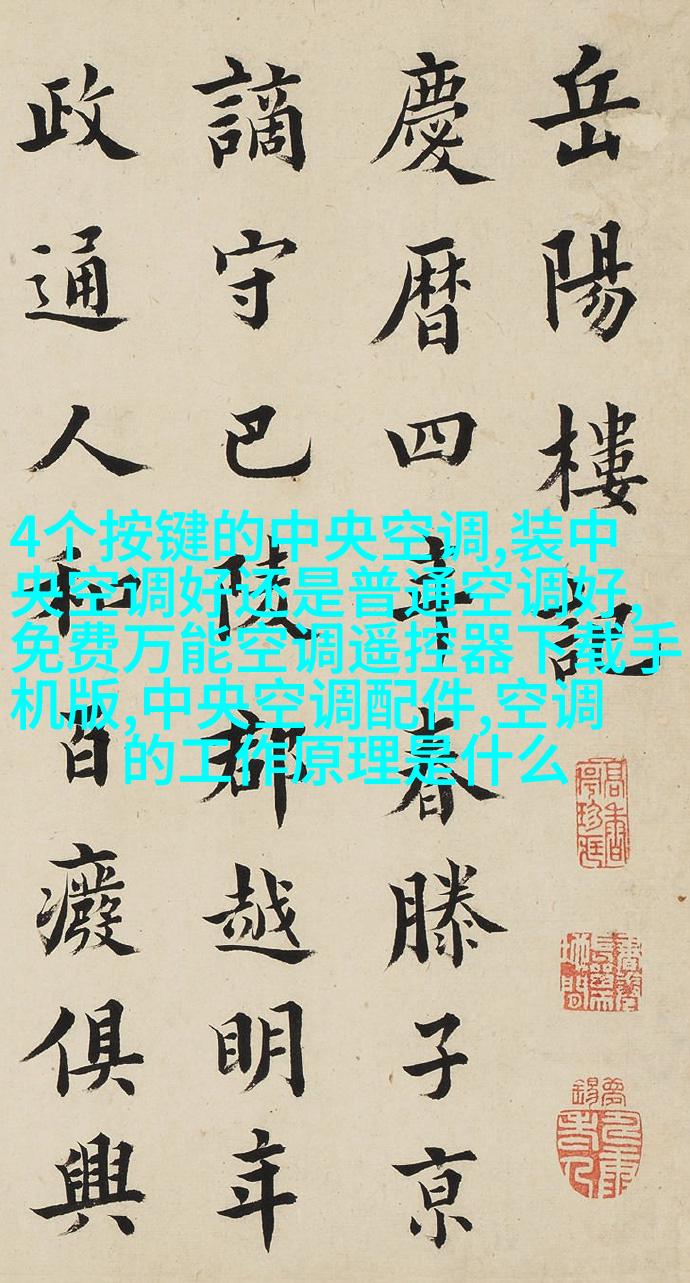 岳陽樓記
慶暦四年春滕子亰
謫守巴陵郡越明年
政通人和百癈俱興
4个按键的中央空调,装中
央空调好还是普通空调好,
免费万能空调遥控器下载手
机版,中央空调配件,空调
的工作原理是什么